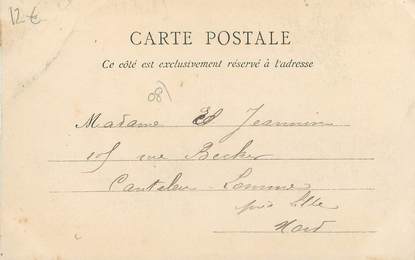 12 €
CARTE POSTALE
Ce côté est exclusivement réservé à l'adresse
98)
Madame Ed Jeannin
rue Becker
Canteleu-Lomme
près Lille
Nord